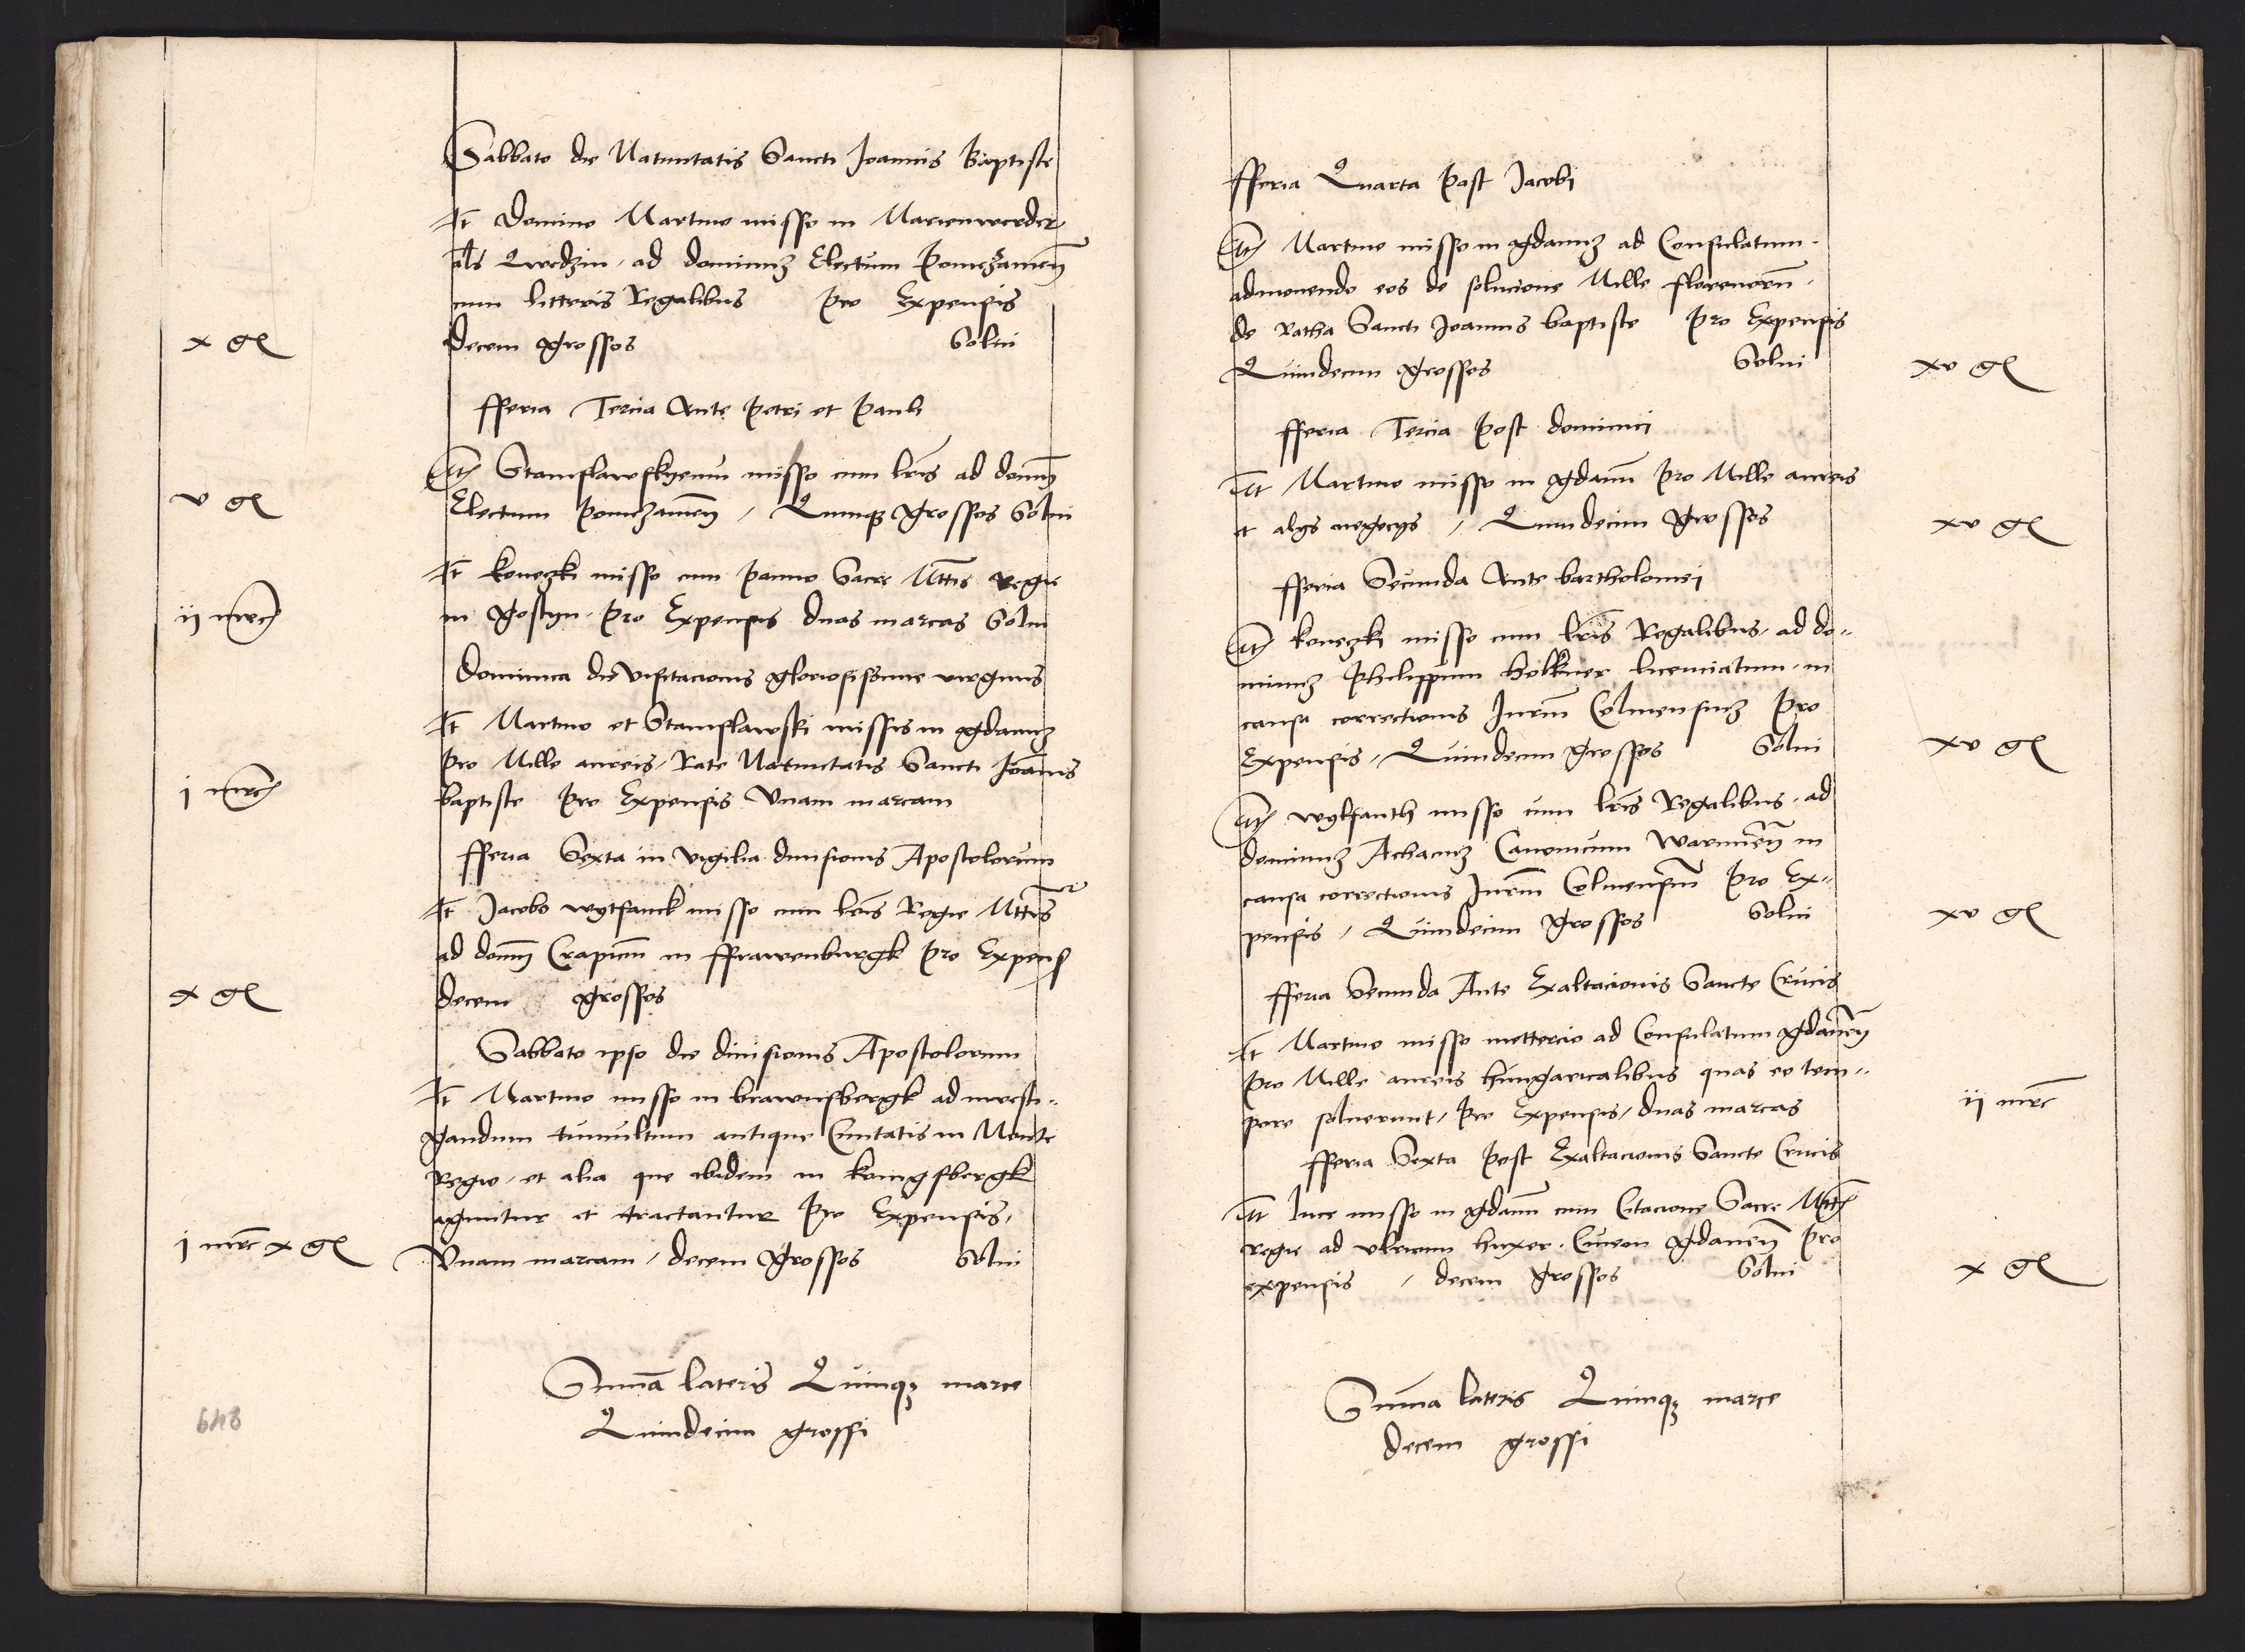 Sabbato die Natiuitatis Sancti Joannis Baptiste
It Domino Martino misso in Marienwerder
als Qwedzin, ad dominuz Electum Pomezanien
cum litteris Regalibus pro Expensis
x gr decem grossos Solui
fferia Tercia Ante Petri et Pauli
It Stanislawskyemu misso cum lris ad domm
v gr Electum Pomezanien, Quinqz grossos Solui
It konezki misso cum panno Sacre Mttis regie
ij mrc in gostyn pro Expensis duas marcas Solui
Dominica die visitacionis gloriosissime virginis
It Martino et Stanislawski missis in gdanuz
pro Mille aureis, Rate Natiuitatis Sancti Joannis
j mrc baptiste pro Expensis Vnam marcam
fferia Sexta in vigilia diuisionis Apostolorum
It Jacobo wytfanck misso cum lris Regie Mttis
ad domm Crapicium in ffrawenburgk pro Expens
x gr decem grossos
Sabbato ipso die diuisionis Apostolorum
It Martino misso in brawnsbergk ad inuesti-
gandum tumultum antique Ciuitatis in Monte
Regio, et alia que ibidem in konigsbergk
aguntur et tractantur pro Expensis,
j mrc x gr Vnam marcam, decem grossos Solui
Suma lateris Quinqz marce
Quindecim grossi
648
fferia Quarta post Jacobi
It Martino misso in gdanuz ad Consulatum
admonendo eos de solucione Mille florenorum
de Ratha Sancti Joannis baptiste pro Expensis
Quindecim grossos Solui xv gr
fferia Tercia post dominici
It Martino misso in gdanm pro Mille aureis
et alijs negocijs, Quindecim grossos xv gr
fferia Secunda Ante bartholomei
It konezki misso cum lris Regalibus, ad do-
minuz Philippum holkner licenciatum in
causa correctionis Jurium Colmensiuz pro
Expensis, Quindecim grossos Solui xv gr
It wytfanth misso cum lris Regalibus, ad
dominuz Achacuz Canonicum Warmien in
causa correctionis Jurium Colmensium pro Ex-
pensis, Quindecim grossos Solui xv gr
fferia Secunda Ante Exaltacionis Sancte Crucis
It Martino misso mettercio ad Consulatum gdanen
pro Mille aureis hungaricalibus quas eo tem-
pore soluerunt, pro Expensis, duas marcas ij mrc
fferia Sexta post Exaltacionis Sancte Crucis
It luce misso in gdanm cum Citacione Sacre Mttis
regie ad vlricum huxer Ciuem gdanen pro
expensis, decem grossos Solui x gr
Suma lateris Quinqz marce
decem grossi